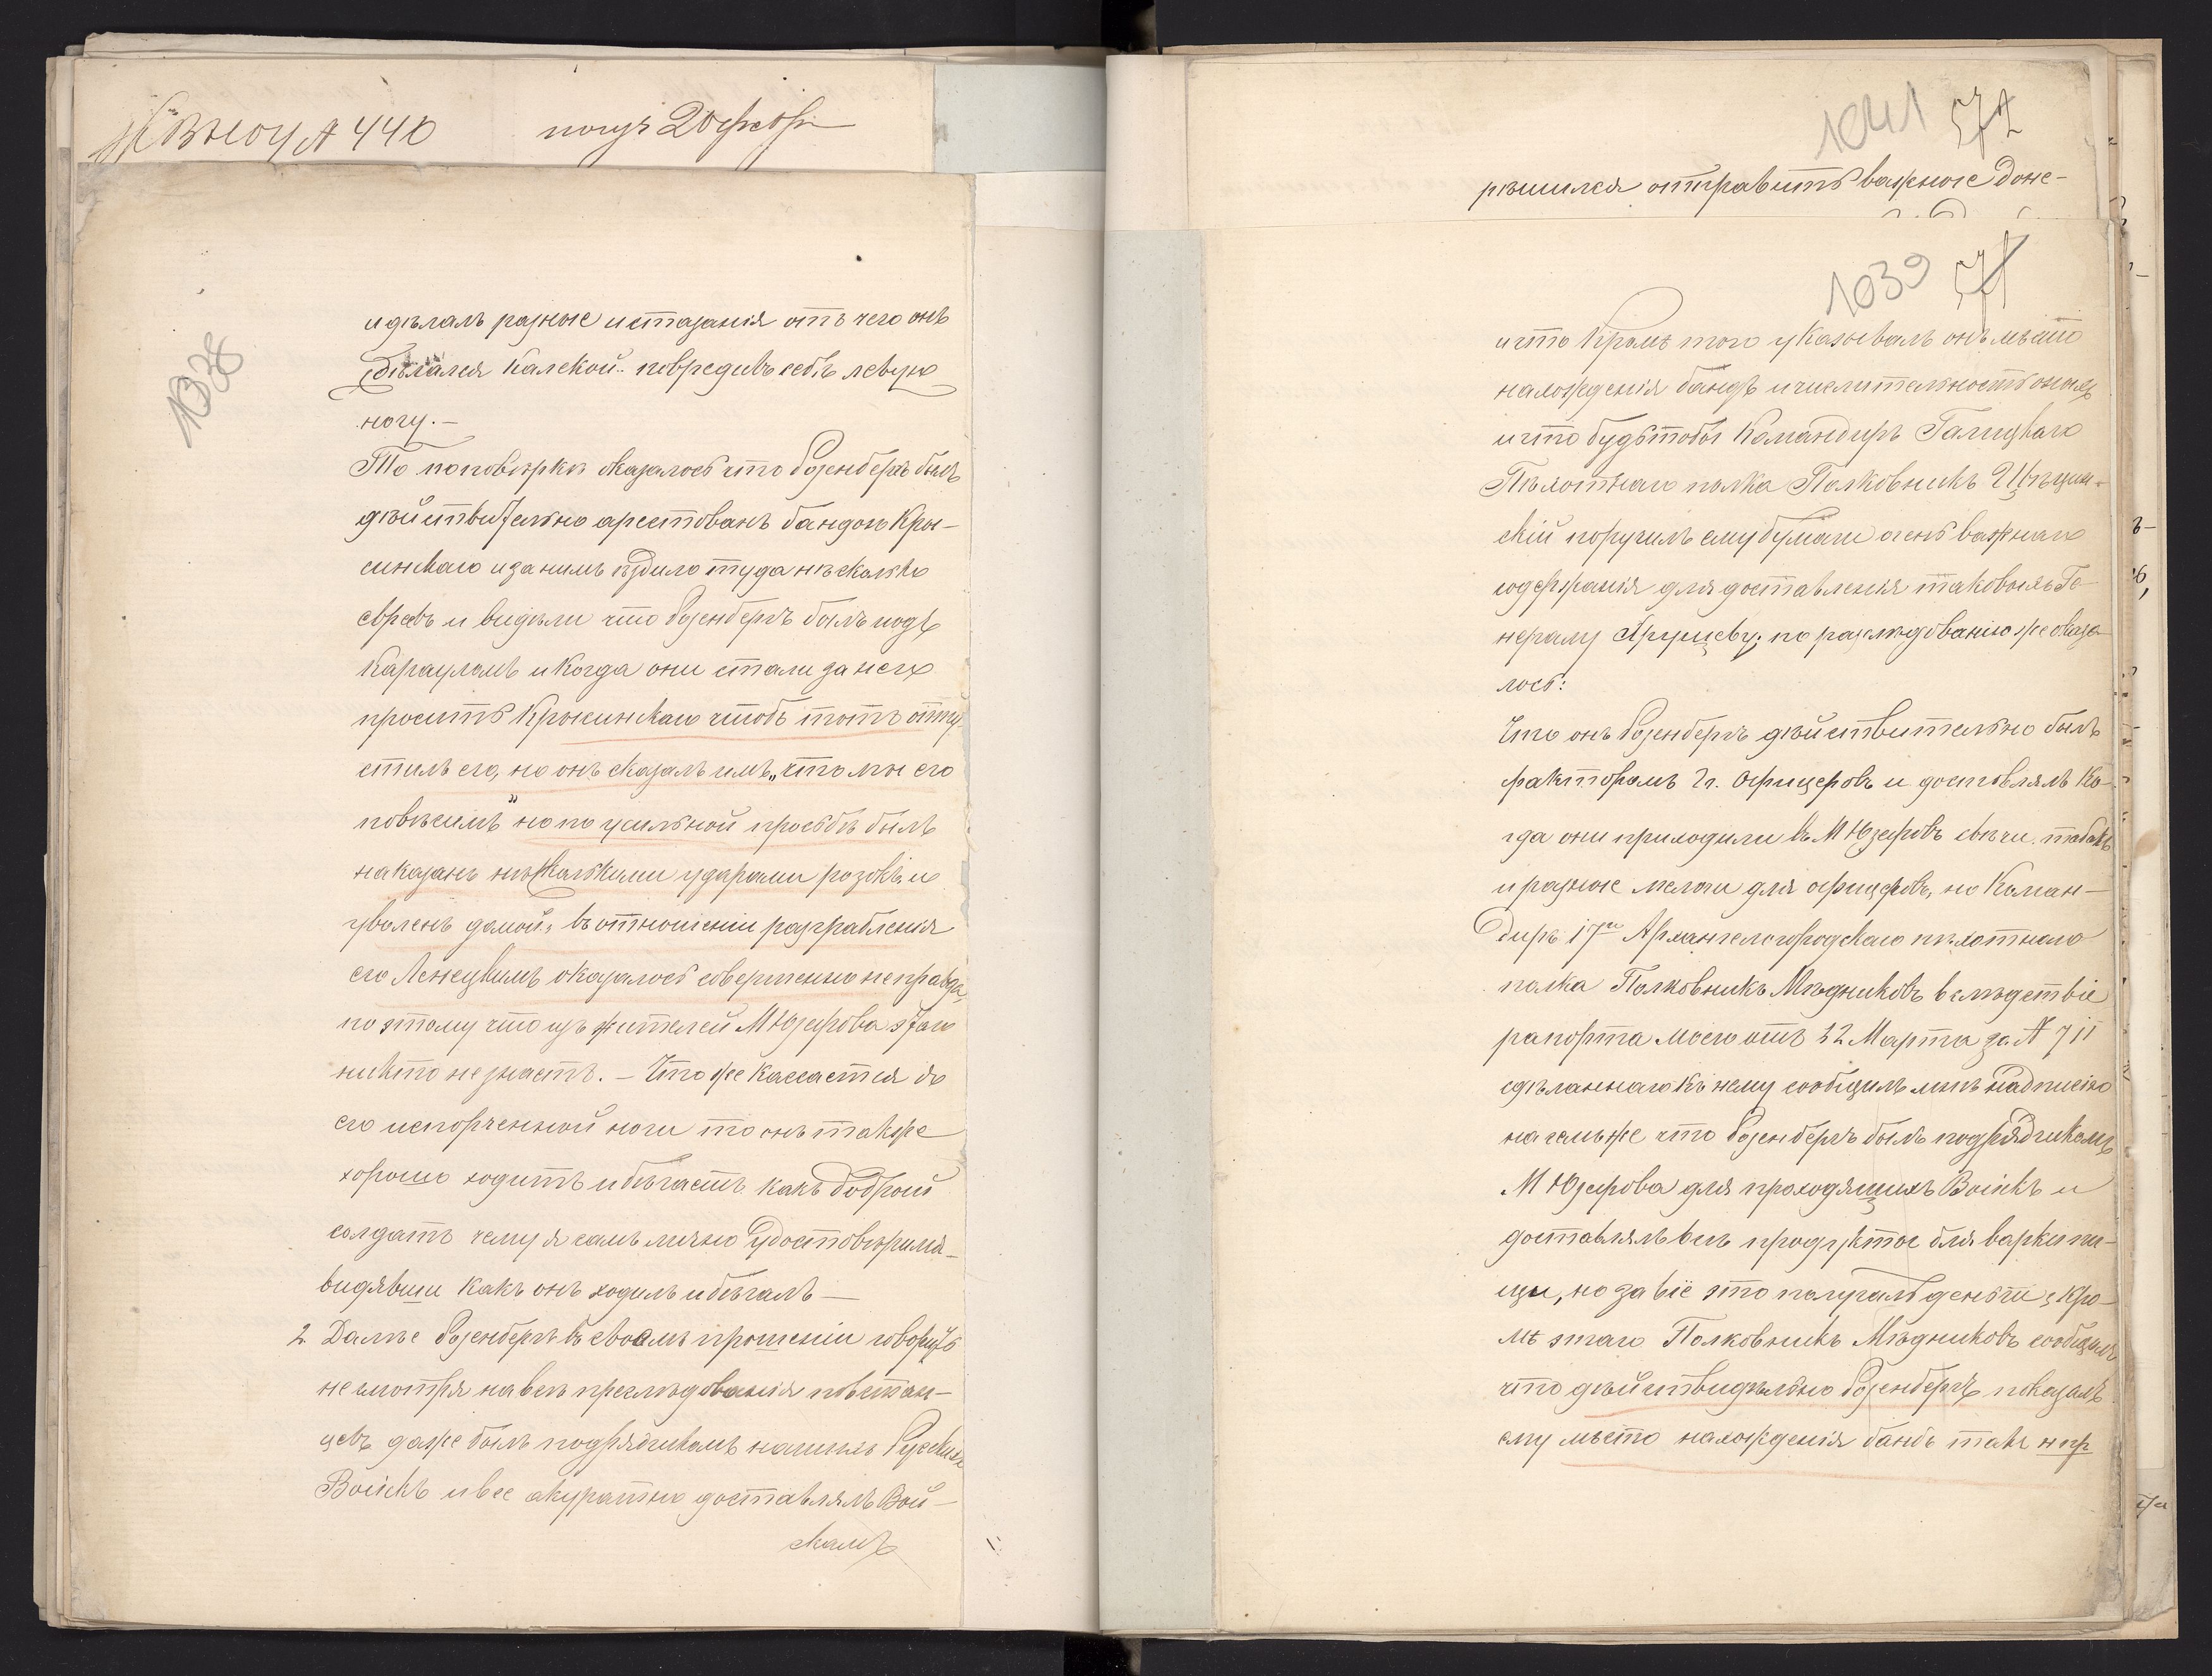 № 440
1038
и дѣлалъ разные истязанія отъ чего онъ
сдѣлался Калекой повредивъ себѣ левую
ногу. —
То по повѣркѣ оказалось что Розенбергъ былъ
дѣйствительно арестованъ бандою Кры-
синскаго и за нимъ ѣздило туда нѣсколько
евреевъ и видѣли что Розенбергъ былъ подъ
Карауломъ и Когда они стали за него
просить Крысинскаго чтобъ тотъ отпу-
стилъ его, но онъ сказалъ имъ „что мы его
повѣсимъ" но по усильной просьбѣ былъ
наказанъ нѣсколькими ударами розокъ и
уволенъ домой, въ отношеніи разграбленія
его Ленецкимъ оказалось совершенно неправда,
по этому что изъ жителей М Юзефова этаго
никто не знаетъ. — Что же касается до
его испорченной ноги то онъ также
хорошо ходитъ и бѣгаетъ какъ добрый
солдатъ чему я самъ лично удостовѣрился
видявши какъ онъ ходилъ и бѣгалъ —
2 Далѣе Розенбергъ въ своемъ прошеніи говоритъ
не смотря на всѣ преслѣдованія повстан-
цевъ даже былъ подрядчикомъ нашихъ Русскихъ
Войскъ и все акуратно доставлялъ Вой-
скамъ
1041 572
рѣшился отправить важное доне-
1039 571
и что Кромѣ того указывалъ онъ мѣсто
нахожденія бандъ и числительность оныхъ
и что будьтобы Командиръ Галицкаго
Пѣхотнаго полка Полковникъ Цѣцин-
скій поручилъ ему бумаги очень важнаго
содержанія для доставленія таковыхъ Ге-
нералу Хрущеву; по разслѣдованію же оказа-
лось:
Что онъ Розенбергъ дѣйствительно былъ
факторомъ Гг. Офицеровъ и доставлялъ Ко-
гда они приходили въ М Юзефовъ свѣчи, табакъ
и разные мелочи для офицеровъ, но Коман-
диръ 17го Архангелогородскаго пѣхотнаго
полка Полковникъ Мѣдниковъ вслѣдствіе
рапорта моего отъ 22 Марта за № 711
сдѣланнаго къ нему сообщилъ мнѣ надписью
на немъ же что Розенбергъ былъ подрядчикомъ
М Юзефова для проходящихъ Войскъ и
доставлялъ всѣ продукты для варки пи-
щи, но за всё это получалъ деньги; Кро-
мѣ этаго Полковникъ Мѣдниковъ сообщилъ
что дѣйствидѣльно Розенбергъ показалъ
ему мѣсто нахожденія бандъ такъ нпр